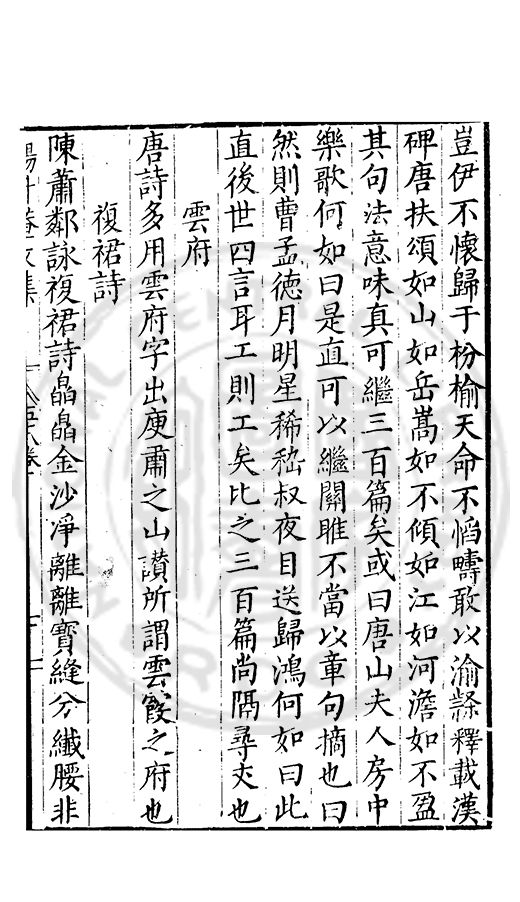 豈伊不懷歸于枌榆天命不慆疇敢以渝隸釋載漢
碑唐扶頌如山如岳嵩如不傾如江如河澹如不盈
其句法意味真可繼三百篇矣或曰唐山夫人房中
樂歌何如曰是直可以繼關雎不當以章句摘也曰
然則曹孟德月明星稀嵇叔夜目送歸鴻何如曰此
直後世四言耳工則工矣比之三百篇尚隔尋丈也
雲府
唐詩多用雲府字出庾肅之山讃所謂雲霞之府也
複裙詩
陳蕭鄰詠複裙詩皛皛金沙淨離離寶縫分纖腰非